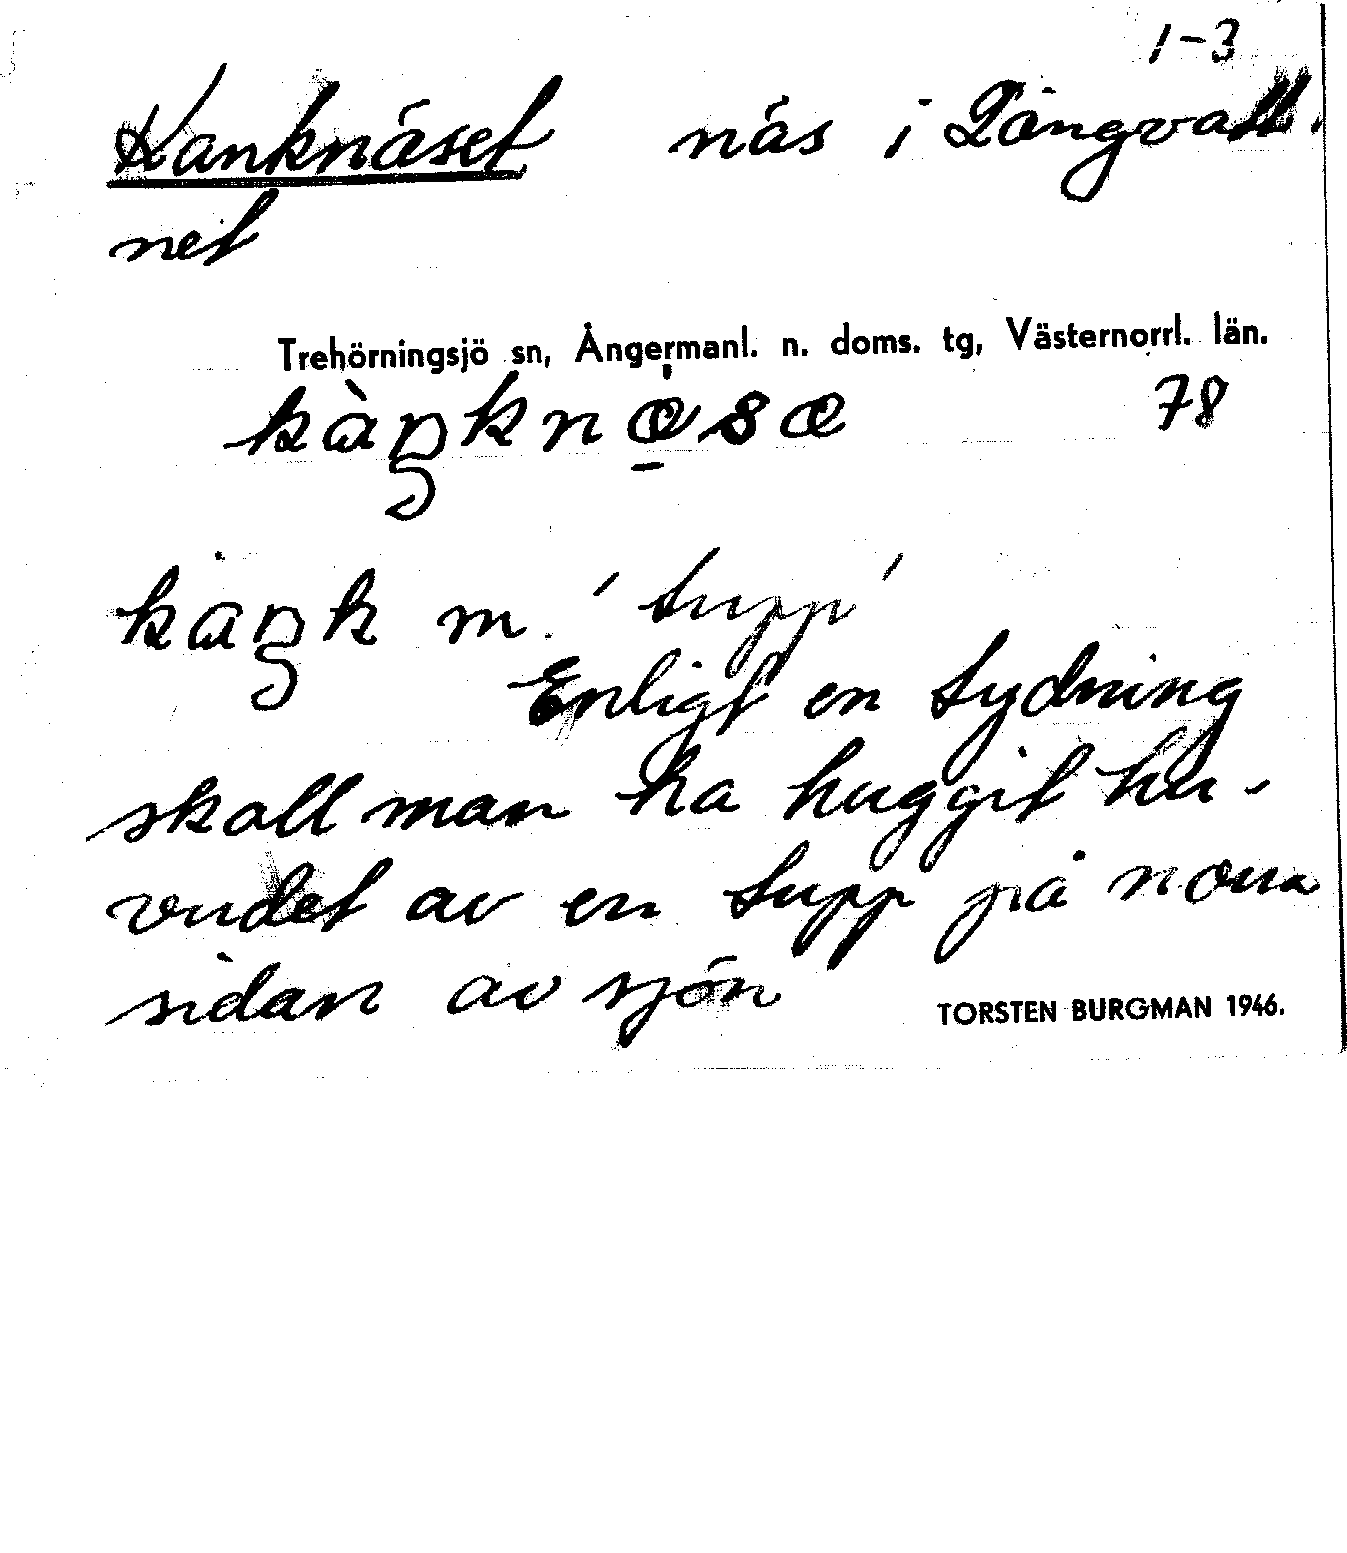 1-3
Kanknäset näs i Långvatt-
net
Trehörningsjö sn, Ångermanl. n. doms. tg, Västernorrl. län.
kàŋknæ̱sæ 78
kaŋk m. 'tupp'
Enligt en tydning
skall man ha huggit hu-
vudet av en tupp på norra
sidan av sjön
TORSTEN BURGMAN 1946.